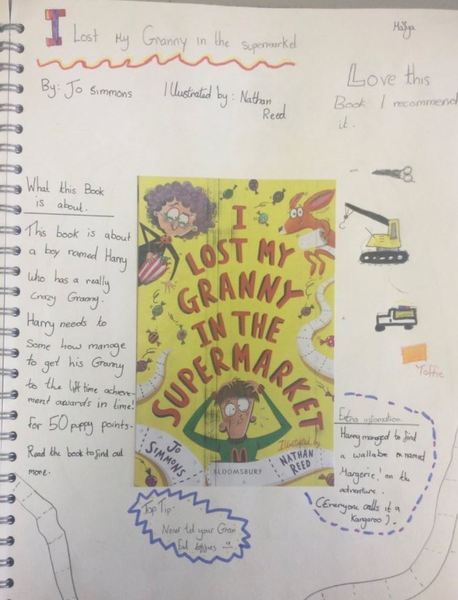 I Lost My Granny in the supermarket
Maiya
By: Jo Simmons
Illustrated by: Nathan
Reed
Love this
Book I recommend
it.
What this Book
is about.
This book is about
a boy named Harry
who has a really
crazy Granny.
Harry needs to
Some how manage
to get his Granny
to the life time achieve-
ment awards in time.
for 50 puppy points.
Read the book to find out
more.
I
LOST MY
GRANNY
IN THE
SUPERMARKET
JO
SIMMONS
Illustrated by
NATHAN
REED
BLOOMSBURY
Toffie
Extra information
Harry managed to find
a wallabe named
Margerie! on the
adventure.
(Everyone calls it a
Kangaroo).
Top Tip:
Never let your Gran
Eat toffies